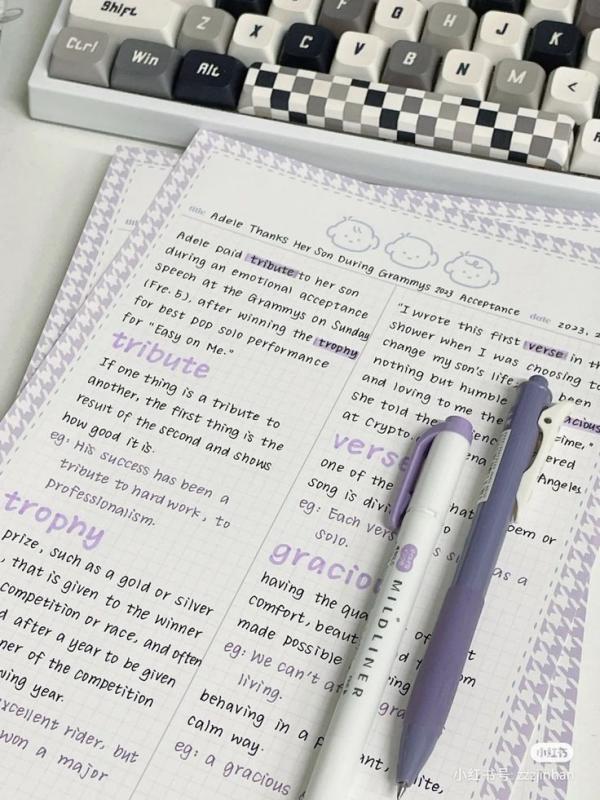 Shift
Z
X
C
V
B
N
M
<
G
H
J
K
Ctrl
Win
Alt
title Adele Thanks Her Son During Grammys 2023 Acceptance date 2023. 2
Adele paid tribute to her son
during an emotional acceptance
speech at the Grammys on Sunday
(Fre. 5), after winning the trophy
for best pop solo performance
for "Easy on Me."
tribute
If one thing is a tribute to
another, the first thing is the
result of the second and shows
how good it is.
eg: His success has been a
tribute to hard work, to
professionalism.
trophy
prize, such as a gold or silver
, that is given to the winner
competition or race, and often
d after a year to be given
ner of the competition
wing year.
excellent rider, but
won a major
"I wrote this first verse in th
shower when I was choosing to
change my son's life, been
nothing but humble
and loving to me the acious
she told the ience time,"
at Crypto. ena ered
Angeles
verse
one of the hat
song is divi oem or
eg: Each vers s s as a
solo.
gracious
having the qua of
comfort, beaut d om
made possible
eg: We can't a ing
living. gra
behaving in a p ant, lite,
calm way.
eg: a gracious
MILDLINER
小红书
小红书号: zzzjinhan